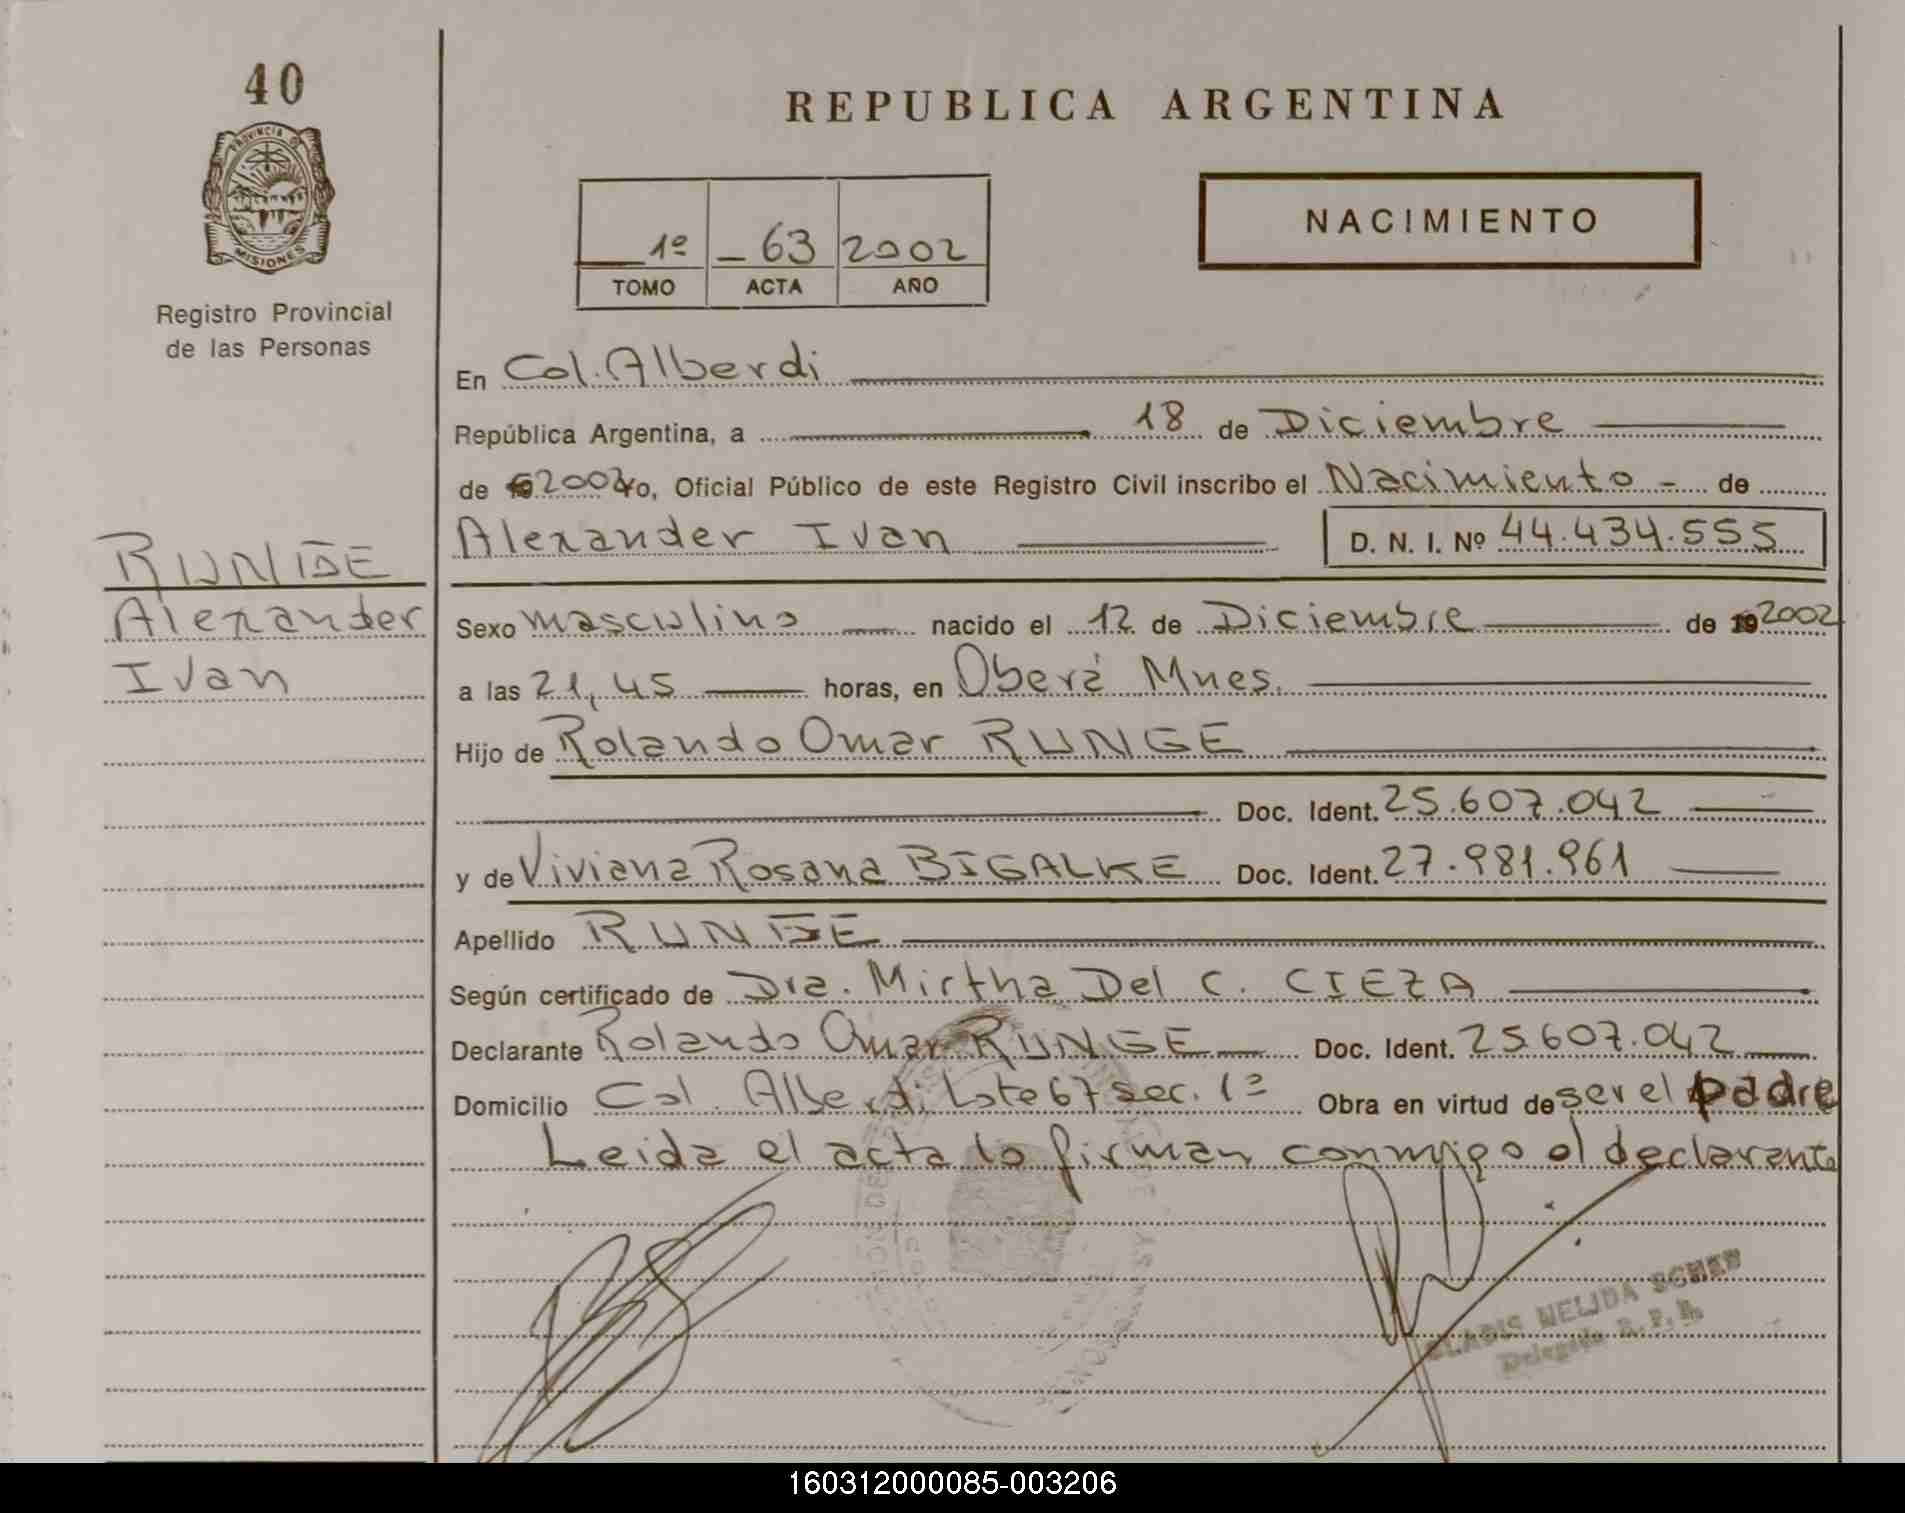 40
PROVINCIA DE
MISIONES
Registro Provincial
de las Personas
REPUBLICA ARGENTINA
1º - 63 2002
TOMO ACTA AÑO
NACIMIENTO
En Col. Alberdi
República Argentina, a 18 de Diciembre
de 2002 Yo, Oficial Público de este Registro Civil inscribo el Nacimiento - de
Alexander Ivan D. N. I. Nº 44.434.555
RUNGE
Alexander
Ivan
Sexo masculino nacido el 12 de Diciembre de 19 2002
a las 21,45 horas, en Oberá Mnes.
Hijo de Rolando Omar RUNGE
Doc. Ident. 25.607.042
y de Viviana Rosana BIGALKE Doc. Ident. 27.981.961
Apellido RUNGE
Según certificado de Dra. Mirtha Del C. CIEZA
Declarante Rolando Omar RUNGE Doc. Ident. 25.607.042
Domicilio Col. Alberdi Lote 67 sec. 1ª Obra en virtud de ser el padre
Leida el acta la firman conmigo el declarante
GLADIS NELIDA
Delegada R. P. P.
160312000085-003206